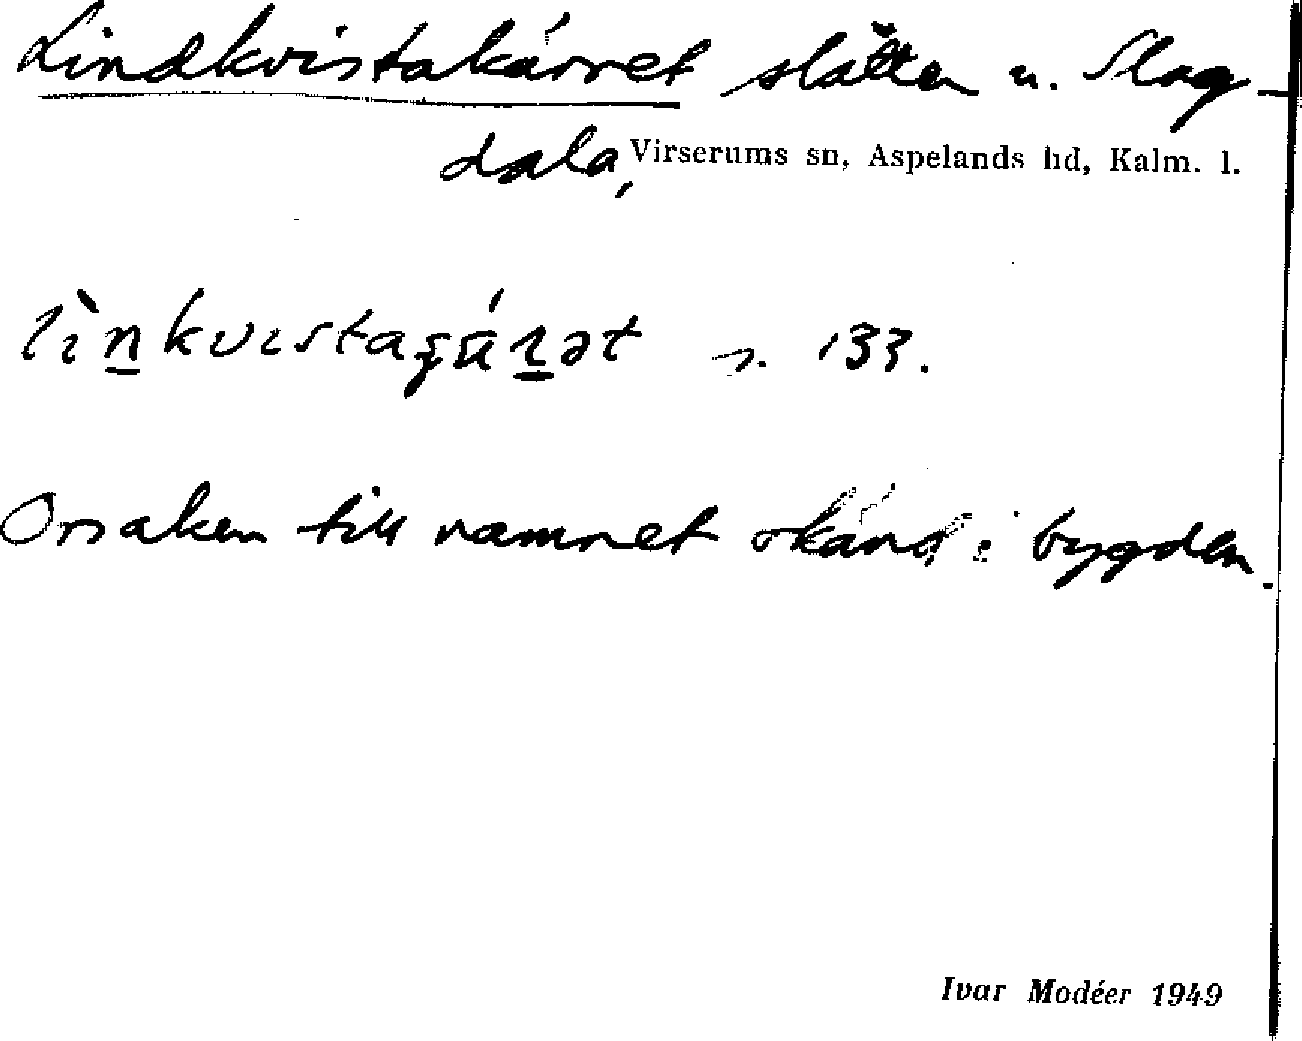 Lindkvistakärret slåtter u. Slag-
dala, Virserums sn, Aspelands hd, Kalm. l.
n. 133.
Orsaken till namnet okänd i bygden.
Ivar Modéer 1949